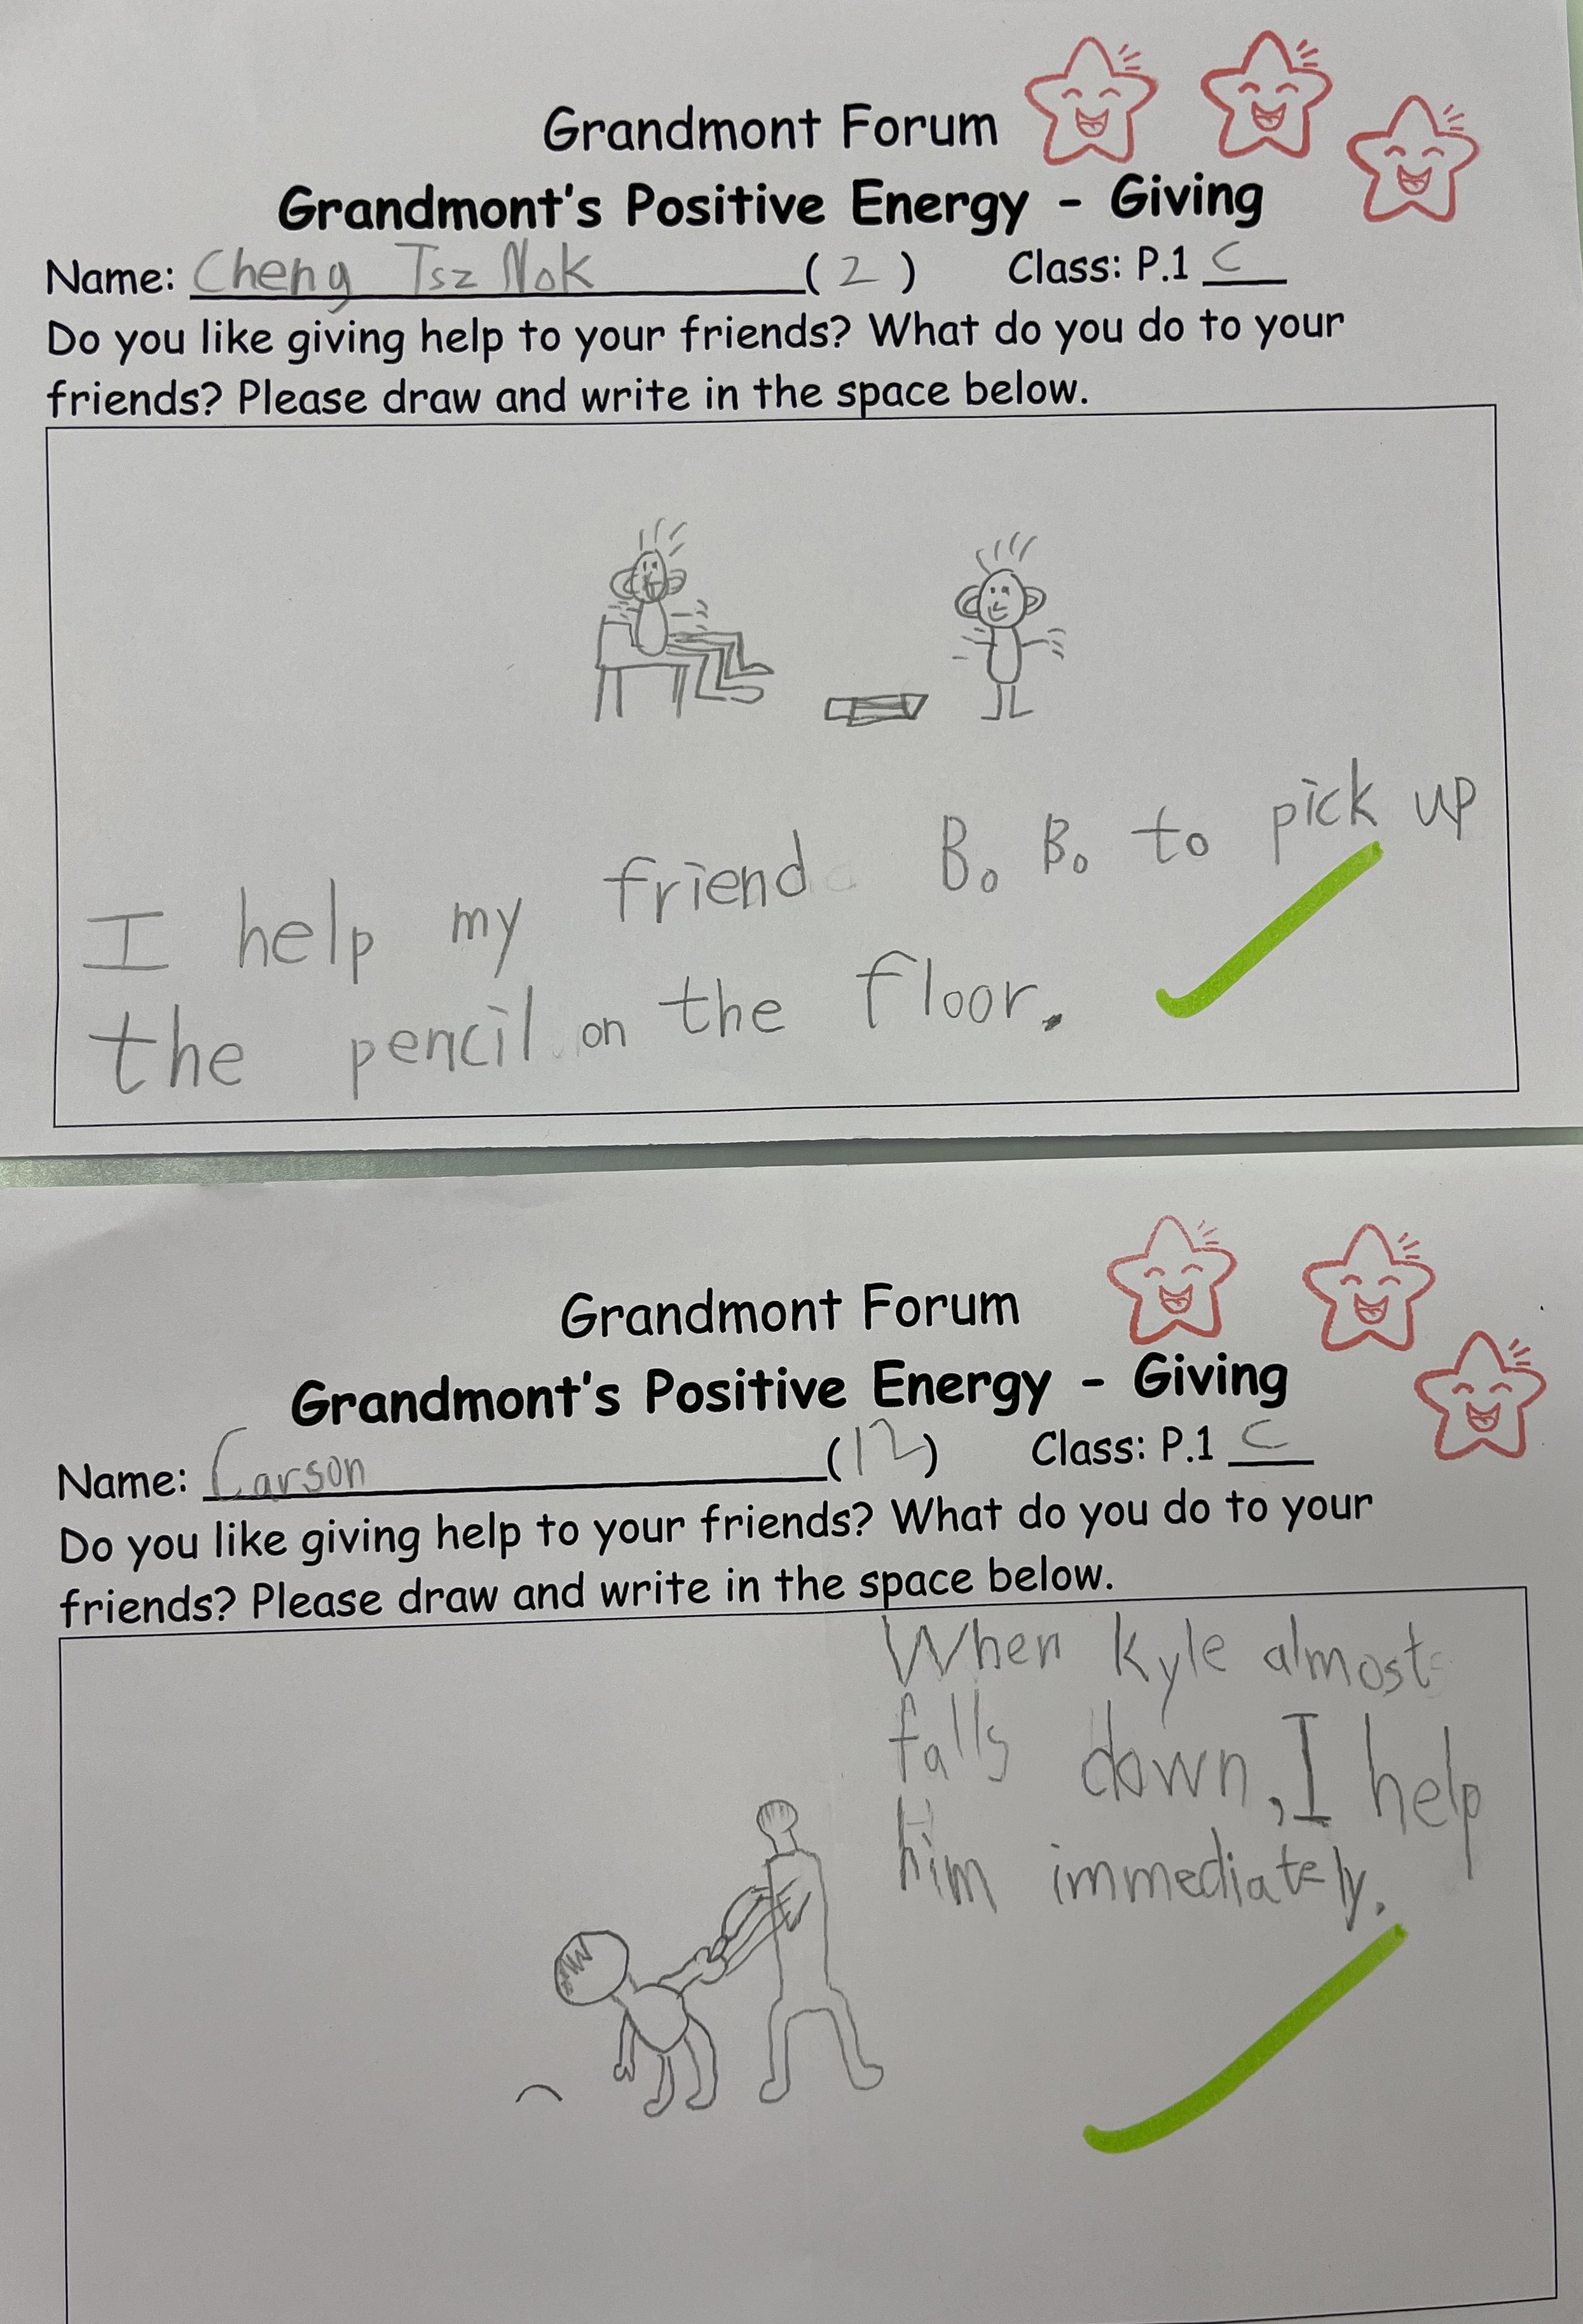 Grandmont Forum
Grandmont's Positive Energy - Giving
Name: Cheng Tsz Nok (2) Class: P.1 C
Do you like giving help to your friends? What do you do to your
friends? Please draw and write in the space below.
I help my friend B. B. to pick up
the pencil on the floor.
Grandmont Forum
Grandmont's Positive Energy - Giving
Name: Carson (12) Class: P.1 C
Do you like giving help to your friends? What do you do to your
friends? Please draw and write in the space below.
When Kyle almost
falls down, I help
him immediately.